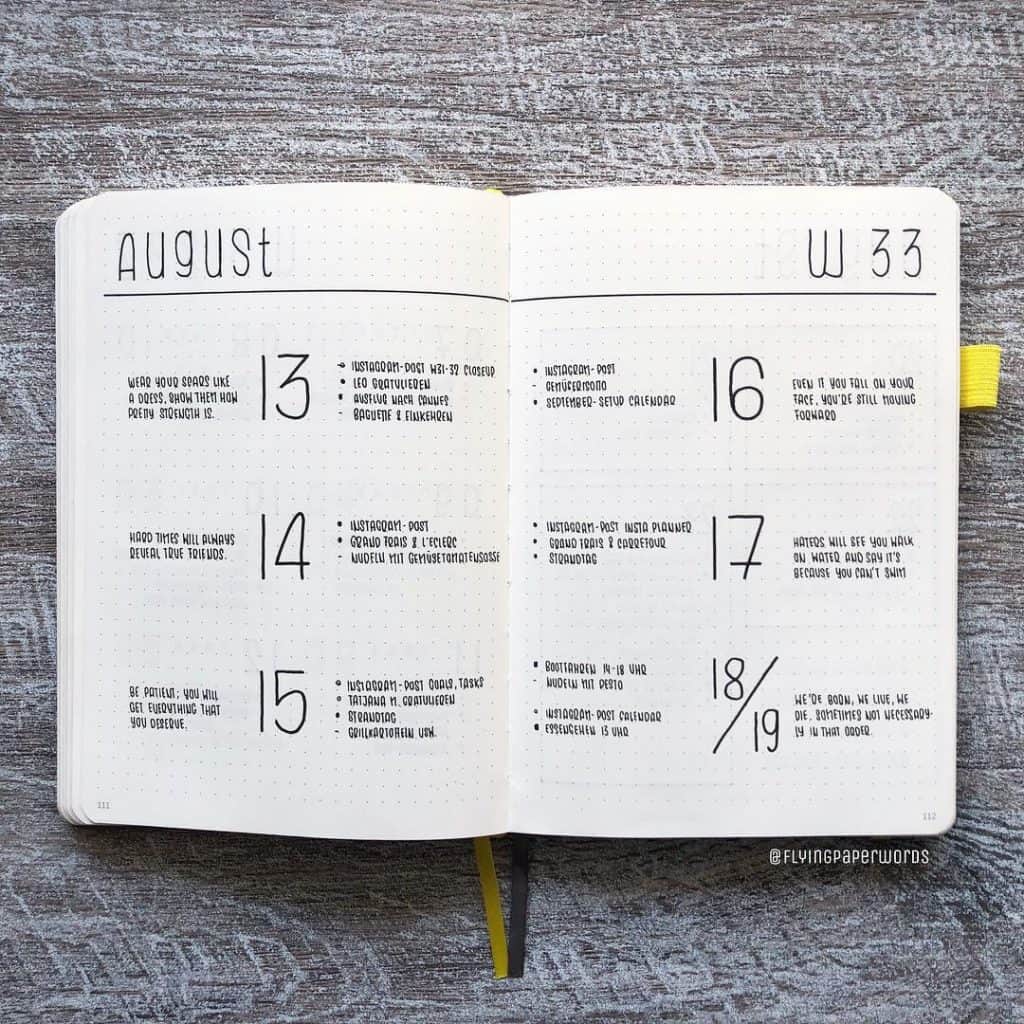 August
W 33
WEAR YOUR SCARS LIKE
A DRESS, SHOW THEM HOW
PRETTY STRENGTH IS.
13
INSTAGRAM-POST W31-32 CLOSEUP
LEO GRATULIEREN
AUSFLUG NACH CANNES
BAGUETTE & EINKEHREN
HARD TIMES WILL ALWAYS
REVEAL TRUE FRIENDS.
14
INSTAGRAM-POST
GRAND FRAIS & L'ECLERC
NUDELN MIT GEMÜSETOMATENSOSSE
BE PATIENT; YOU WILL
GET EVERYTHING THAT
YOU DESERVE.
15
INSTAGRAM-POST GOALS, TASKS
TATJANA M. GRATULIEREN
STRANDTAG
GRILLKARTOFFELN USW.
111
INSTAGRAM-POST
GEMÜSERISOTTO
SEPTEMBER-SETUP CALENDAR
16
EVEN IF YOU FALL ON YOUR
FACE, YOU'RE STILL MOVING
FORWARD
INSTAGRAM-POST INSTA PLANNER
GRAND FRAIS & CARREFOUR
STRANDTAG
17
HATERS WILL SEE YOU WALK
ON WATER AND SAY IT'S
BECAUSE YOU CAN'T SWIM
BOOTFAHREN 14-18 UHR
NUDELN MIT PESTO
INSTAGRAM-POST CALENDAR
ESSENGEHEN 13 UHR
18/19
WE'RE BORN, WE LIVE, WE
DIE. SOMETIMES NOT NECESSARI-
LY IN THAT ORDER.
112
@FLYINGPAPERWORDS